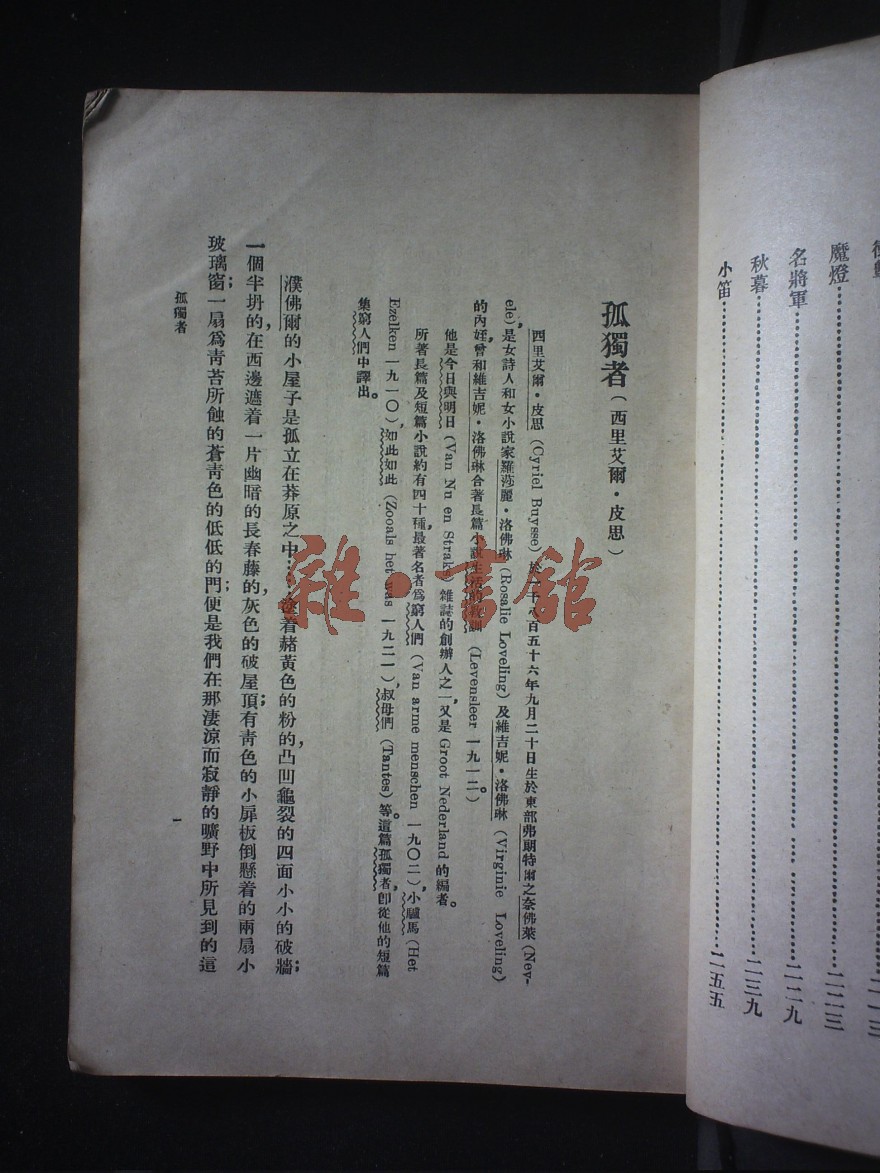 魔燈……二二三
名將軍……二二九
秋暮……二三九
小笛……二五五
孤獨者(西里艾爾·皮思)
西里艾爾·皮思(Cyriel Buysse)於一千八百五十六年九月二十日生於東部弗朗特爾之奈佛萊(Nev-
ele)是女詩人和女小說家羅莎麗·洛佛琳(Rosalie Loveling)及維吉妮·洛佛琳(Virginie Loveling)
的內姪,曾和維吉妮·洛佛琳合著長篇小說生活的教訓(Levensleer 一九一二。)
他是今日與明日(Van Nu en Straks)雜誌的創辦人之一,又是Groot Nederland的編者。
所著長篇及短篇小說約有四十種,最著名者爲窮人們(Van arme menschen 一九〇二),小驢馬(Het
Ezelken 一九一〇),如此如此(Zooals het was 一九二一),叔母們(Tantes)等。這篇孤獨者,卽從他的短篇
集窮人們中譯出。
濮佛爾的小屋子是孤立在莽原之中:塗着赭黃色的粉的,凸凹龜裂的四面小小的破牆;
一個半坍的,在西邊遮着一片幽暗的長春藤的,灰色的破屋頂;有靑色的小屏板倒懸着的兩扇小
玻璃窗;一扇爲靑苔所蝕的蒼靑色的低低的門;便是我們在那淒涼而寂靜的曠野中所見到的這
孤獨者
一
雜·書館